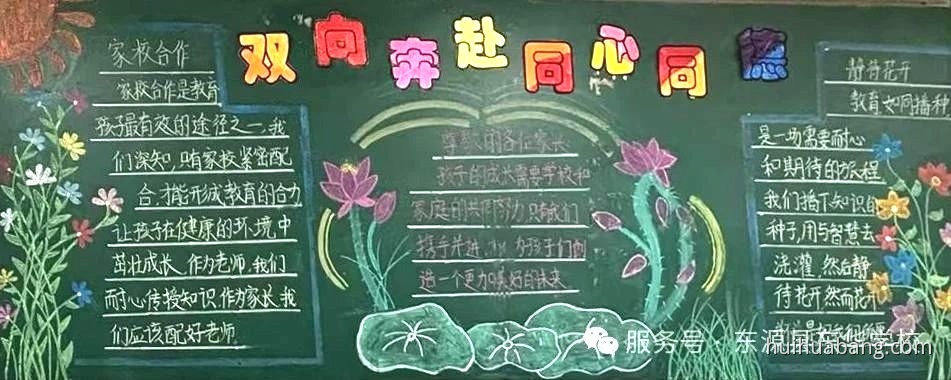 双向奔赴同心同德
家校合作
家校合作是教育
孩子最有效的途径之一,我
们深知,只有家校紧密配
合才能形成教育的合力
让孩子在健康的环境中
茁壮成长,作为老师,我们
耐心传授知识,作为家长,我
们应该配好老师
尊敬的各位家长
孩子的成长需要学校和
家庭的共同努力,只有我们
携手并进,才 为孩子们创
造一个更加美好的未来
静待花开
教育如同播种
是一场需要耐心
和期待的旅程
我们播下知识的
种子,用与智慧去
浇灌,然后静
待花开然而花
服务号·东
huihuabang.com